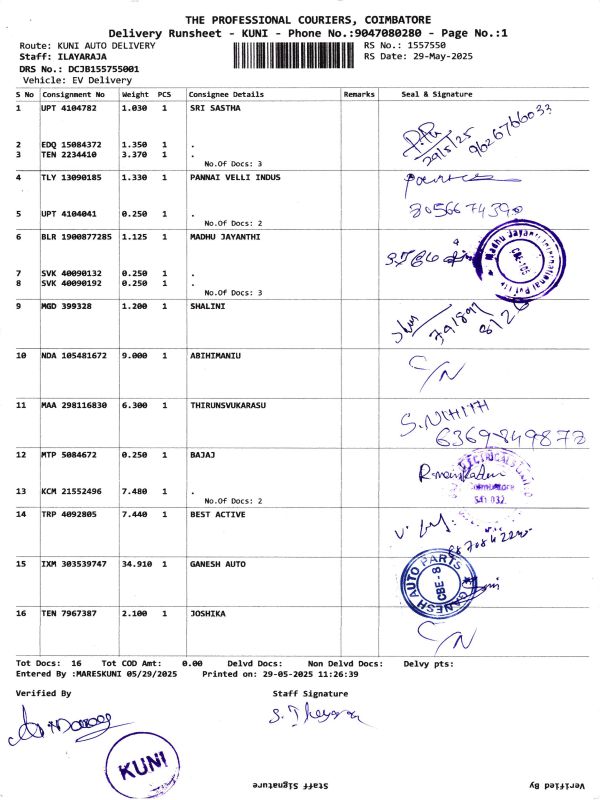 THE PROFESSIONAL COURIERS, COIMBATORE
Delivery Runsheet - KUNI - Phone No.:9047080280 - Page No.:1
Route: KUNI AUTO DELIVERY RS No.: 1557550
Staff: ILAYARAJA RS Date: 29-May-2025
DRS No.: DCJB155755001
Vehicle: EV Delivery
S No Consignment No Weight PCS Consignee Details Remarks Seal & Signature
1 UPT 4104782 1.030 1 SRI SASTHA
29/5/25 9626766033
2 EDQ 15084372 1.350 1 .
3 TEN 2234410 3.370 1 .
No.Of Docs: 3
4 TLY 13090185 1.330 1 PANNAI VELLI INDUS
5 UPT 4104041 0.250 1 .
No.Of Docs: 2
6 BLR 1900877285 1.125 1 MADHU JAYANTHI
Madhu Jayanthi International Pvt Ltd
7 SVK 40090132 0.250 1 .
8 SVK 40090192 0.250 1 .
No.Of Docs: 3
9 MGD 399328 1.200 1 SHALINI
10 NDA 105481672 9.000 1 ABIHIMANIU
C/N
11 MAA 298116830 6.300 1 THIRUNSVUKARASU
S.NIHITH
6369849872
12 MTP 5084672 0.250 1 BAJAJ
13 KCM 21552496 7.480 1 .
No.Of Docs: 2
14 TRP 4092805 7.440 1 BEST ACTIVE
15 IXM 303539747 34.910 1 GANESH AUTO
GANESH AUTO PARTS
CBE-8
16 TEN 7967387 2.100 1 JOSHIKA
C/N
Tot Docs: 16 Tot COD Amt: 0.00 Delvd Docs: Non Delvd Docs: Delvy pts:
Entered By :MARESKUNI 05/29/2025 Printed on: 29-05-2025 11:26:39
Verified By Staff Signature
KUNI
Staff Signature Verified By